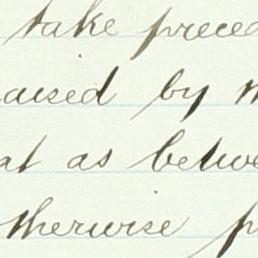 take preced
aised by
at as betwe
otherwise p